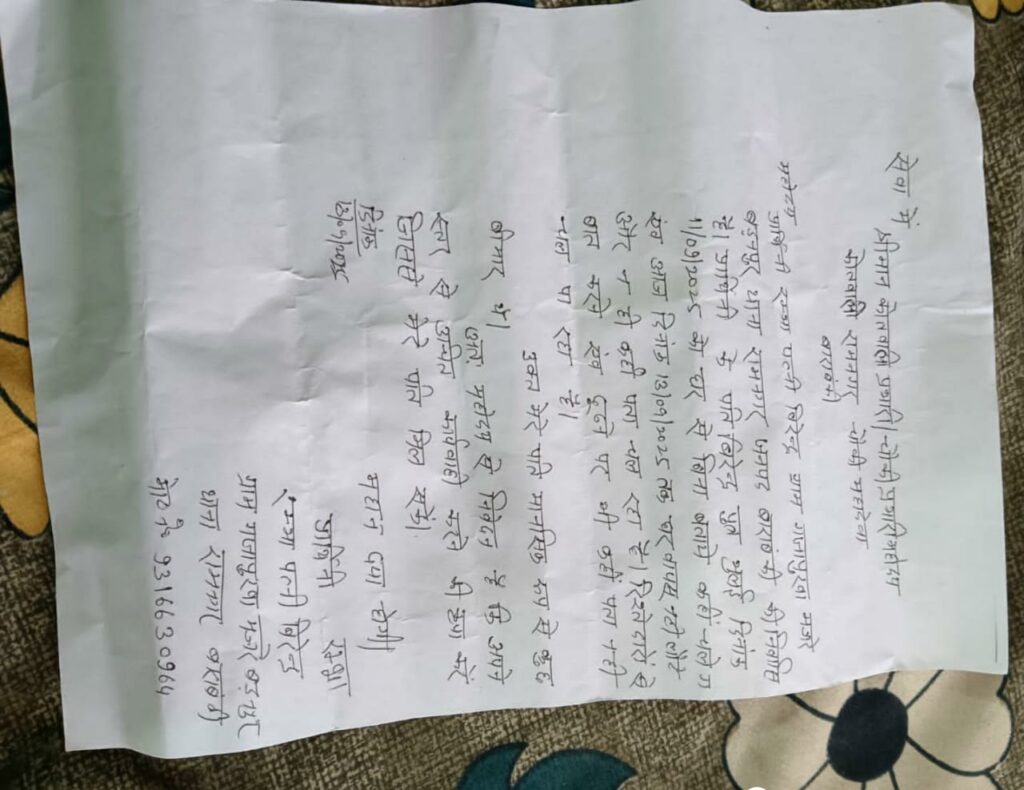 सेवा में
श्रीमान कोतवाली प्रभारी/चौकी प्रभारी महोदय
कोतवाली रामनगर चौकी महादेवा
बाराबंकी
महोदय
प्रार्थिनी पत्नी विरेन्द्र ग्राम गजापुरवा मजरे
थाना रामनगर जनपद बाराबंकी की निवासी
है। प्रार्थिनी के पति विरेन्द्र पुत्र दिनांक
11/09/2025 को घर से बिना बताये कहीं चले गए
एवं आज दिनांक 13/09/2025 तक घर वापस नहीं लौटे
और न ही कहीं पता चल रहा है। रिश्तेदारों से
बात करने एवं ढूढने पर भी कहीं पता नहीं
चल पा रहा है।
उक्त मेरे पति मानसिक रूप से कुछ
बीमार थे। अतः महोदय से निवेदन है कि अपने
स्तर से उचित कार्यवाही करने की कृपा करें
जिससे मेरे पति मिल सकें।
महान दया होगी।
दिनांक
13/09/2025
प्रार्थिनी
पत्नी विरेन्द्र
ग्राम गजापुरवा मजरे
थाना रामनगर बाराबंकी
मो० नं० 9316630964